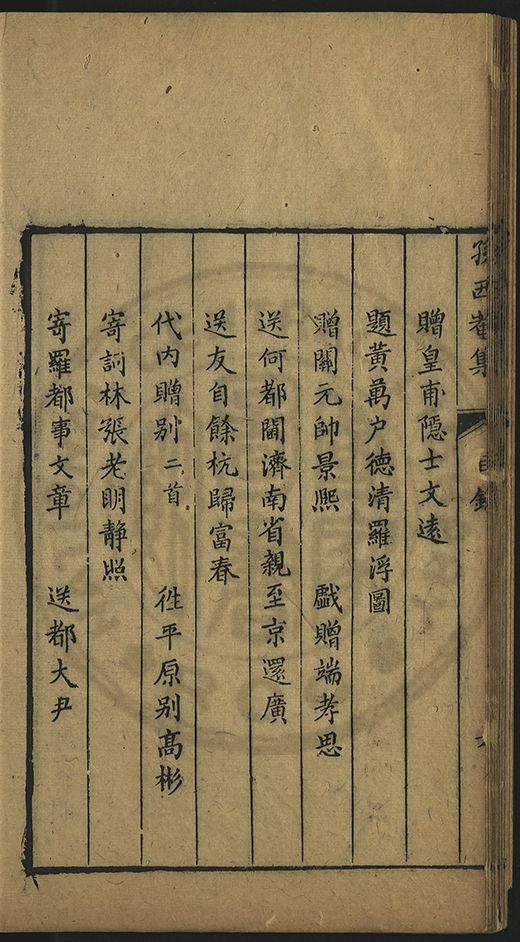 孫西菴集 目錄
贈皇甫隱士文遠
題黃萬戶德清羅浮圖
贈關元帥景熙 戲贈端孝思
送何都閫濟南省親至京還廣
送友自餘杭歸富春
代內贈別二首 徃平原別高彬
寄訶林張老明靜照
寄羅都事文章 送都大尹